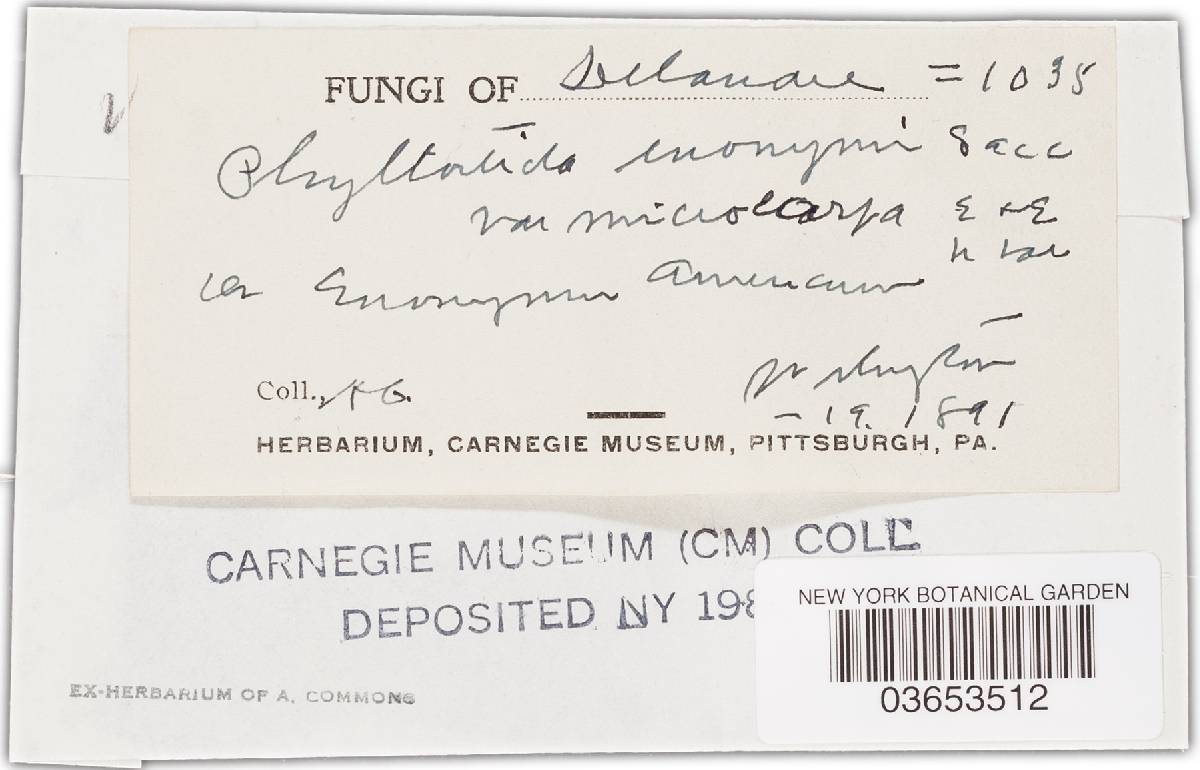 FUNGI OF Delaware = 1035
Phyllosticta euonymi Sacc
var microcarpa E & E
on Euonymus Americanus n var
Wilmington
Coll., A C.
- 19. 1891
HERBARIUM, CARNEGIE MUSEUM, PITTSBURGH, PA.
CARNEGIE MUSEUM (CM) COLL
DEPOSITED NY 198
NEW YORK BOTANICAL GARDEN
03653512
EX-HERBARIUM OF A. COMMONS